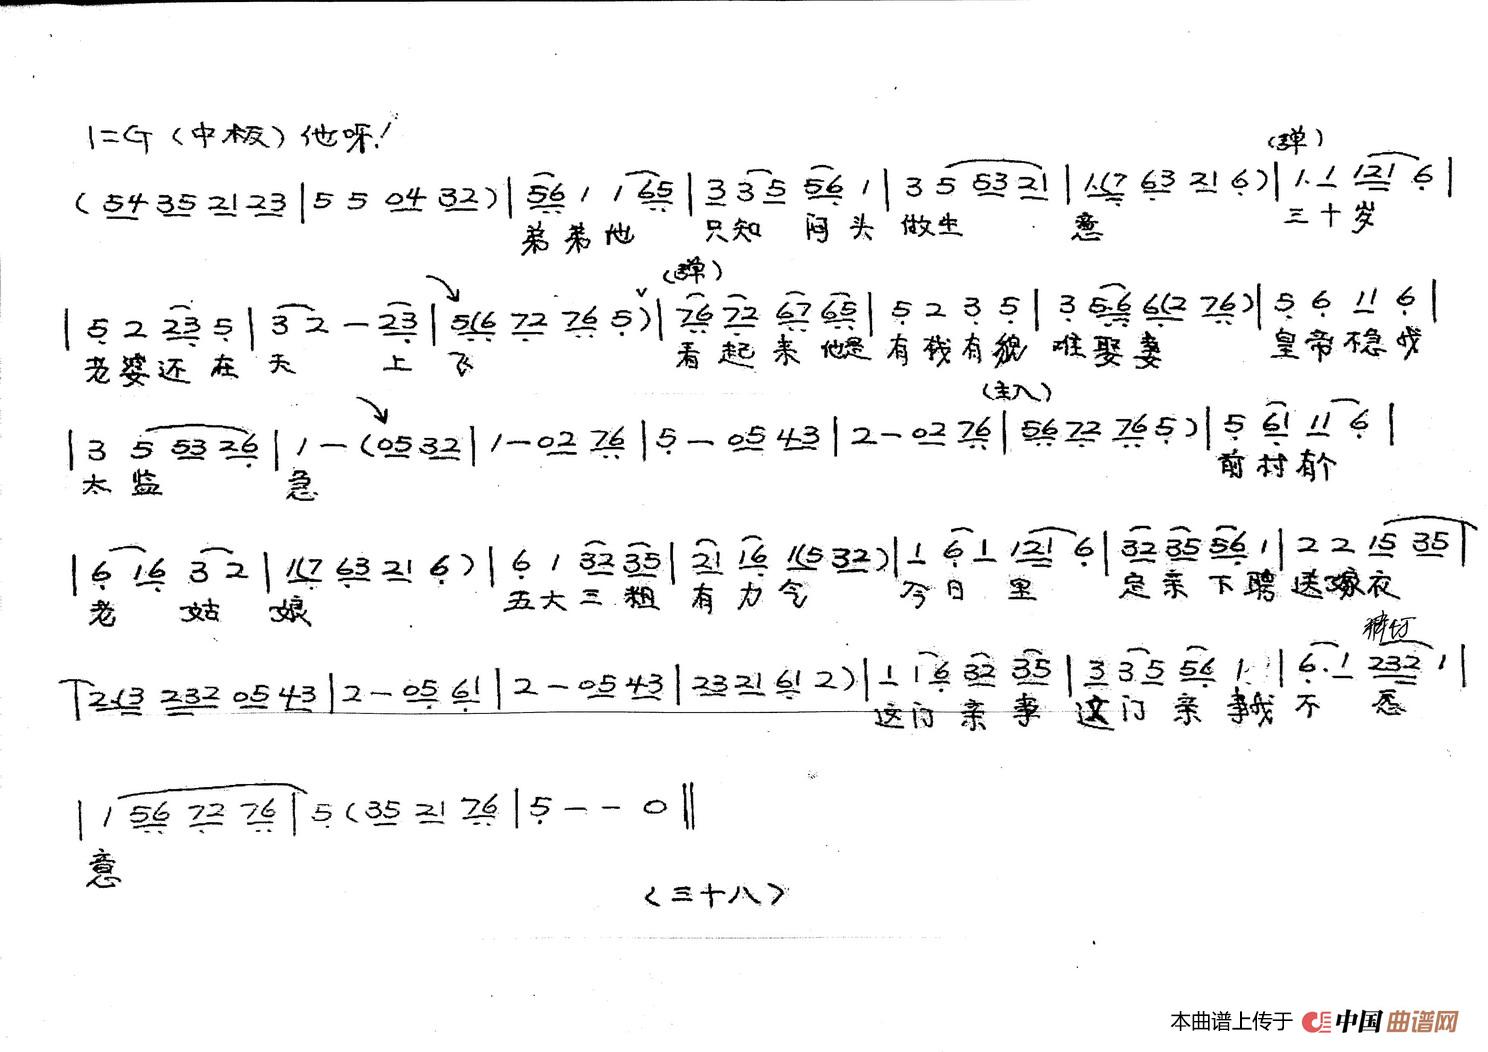 1=G（中板）他呀！
（弹）
（54 35 21 23 | 5 5 04 32）| 56 1 1 65 | 3 3 5 56 1 | 3 5 53 21 | 1.(7 63 21 6）| 1. 1 121 6 |
弟弟他 只知 闷头 做生 意 三十岁
（弹）
| 5 2 23 5 | 3 2 — 23 | 5(6 72 76 5）| 76 72 67 65 | 5 2 3 5 | 3 5.6 6(2 76）| 5 6 11 6 |
老婆还在 天 上 飞 看起来他是 有钱有貌 难娶妻 皇帝不急
（主入）
| 3 5 53 26 | 1 — (05 32 | 1 — 02 76 | 5 — 05 43 | 2 — 02 76 | 56 72 76 5）| 5 61 11 6 |
太监 急 前村有个
| 6 16 3 2 | 1(7 63 21 6）| 6 1 32 35 | 21 16 1(5 32）| 1 6 1 121 6 | 32 35 56 1 | 2 2 15 35 |
老 姑 娘 五大三粗 有力气 今日里 定亲下聘 送嫁衣
| 2.(3 232 05 43 | 2 — 05 61 | 2 — 05 43 | 23 21 61 2）| 1 1 6 32 35 | 3 3 5 56 1 | 6. 1 232 1 |
这门亲事 这门亲事我 不 愿
| 1 56 72 76 | 5（35 21 76 | 5 — — 0 ‖
意
〈三十八〉
本曲谱上传于 中国曲谱网